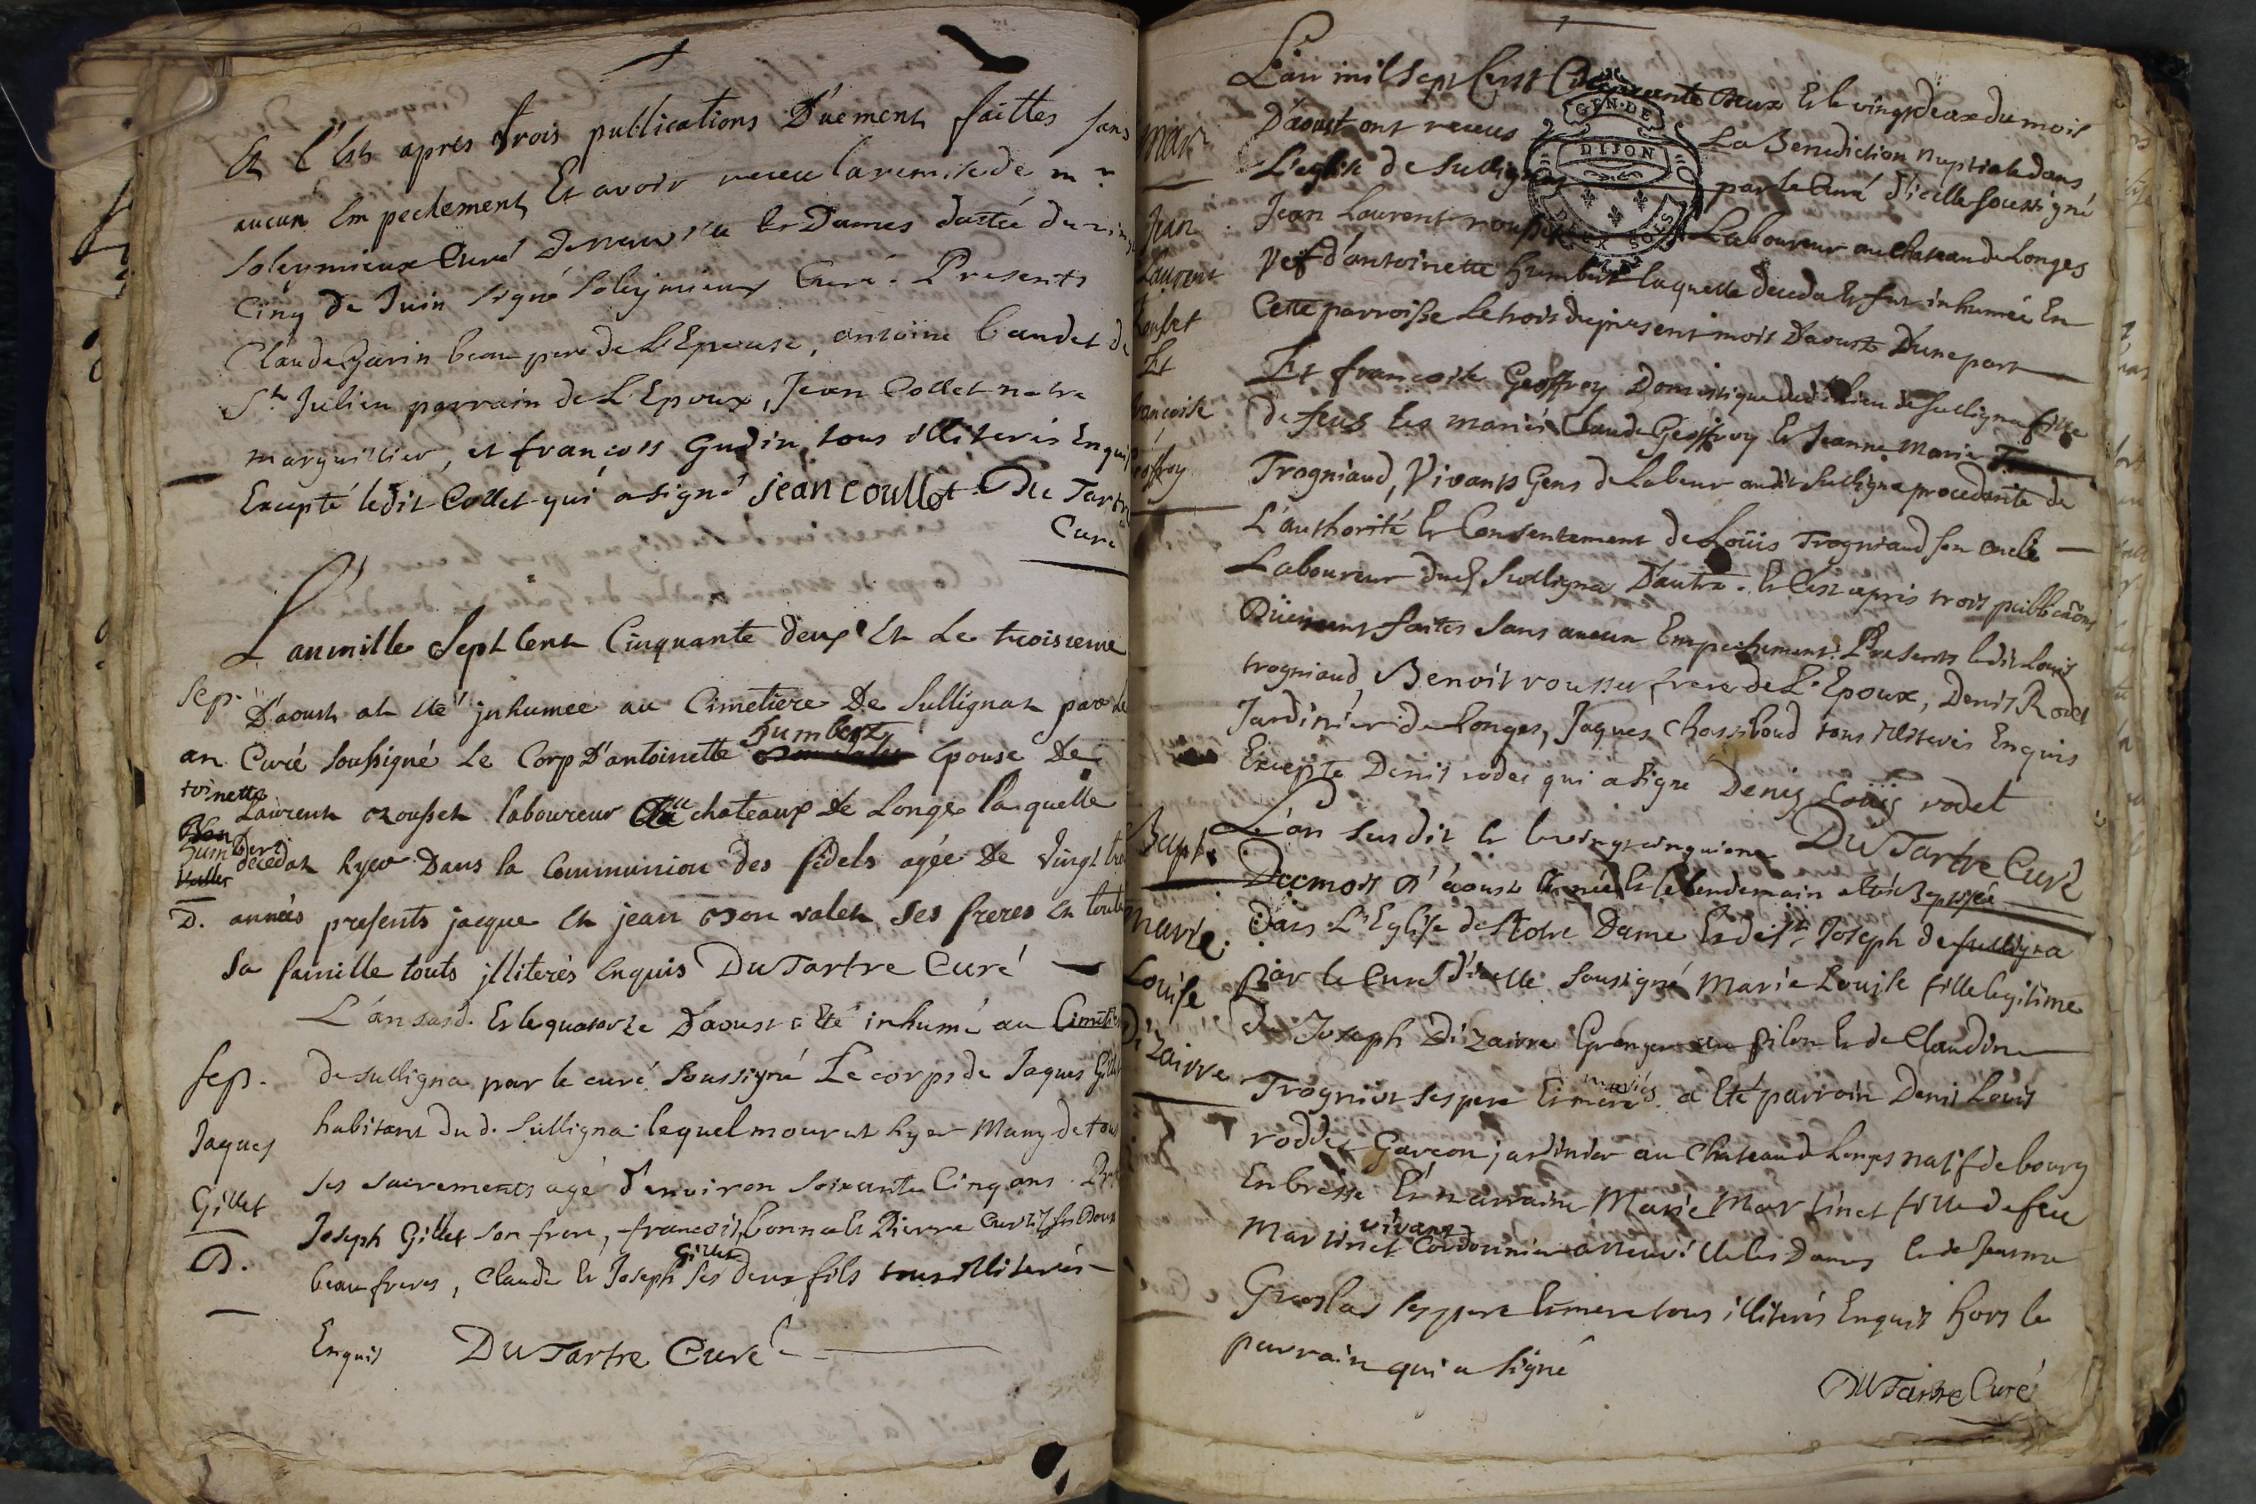 Et C'est apres trois publications Düement faittes sans
aucun Empechement, Et avoir receu la remise de mr
Soleymieux Curé De neuville les Dames dattée du vingt
Cinq de Juin signé Soleymieux Curé. Presents
Claude Garin beau pere de L'Epouse, antoine baudet de
St Julien parrain de L'Epoux, Jean Collet notre
marguillier, et francois Gudin, tous illiterés Enquis
Excepté ledit Collet qui a signé jean coullot Du Tartre
Curé
L'an mille Sept Cent Cinquante deux Et Le troisieme
Sep.
D'aoust at été jnhumée au Cimetiere De Sullignat par le
an
Curé soussigné Le Corp D'antoinette humbert epouse De
toinette
Laurent Rousset laboureur au chateaux de Longe laquelle
humbert
decedat hyer Dans la Communion des fidels agée De Vingt
D.
années presents jacque Et jean valet, Ses freres Et toute
Sa famille touts jlliterés Enquis Du Tartre Curé
L'an susd. Et le quatorze D'aoust a Eté inhumé au Cimet
Sep.
de sulligna par le curé Soussigné Le corps de Jaques Gillet
Jaques
habitant du d. Sulligna lequel mourut hyer Muny de tous
Gillet
ses sacrements agé d'environ soixante Cinq ans.
D.
Joseph Gillet son frere, francois bonnet Et Pierre Curtil ses Deux
beaufreres, Claude Et Joseph Gillet Ses deux fils tous illiterés
Enquis Du Tartre Curé
L'an mil sept Cent Cinquante Deux Et le vingt deux du mois
GEN. DE
DIJON
DEUX SOLS
Mar.
D'aoust ont receus La Benediction nuptiale dans
L'eglise de Sulligna par le Curé d'icelle soussigné
Jean
Laurent
Rousset
Et
francoise
Geoffroy
Jean Laurent rousset Laboureur au chateau de Longes
Vef d'antoinette humbert laquelle deceda Et fut inhumée En
Cette parroisse Le trois du present mois D'aoust D'une part
Et francoise Geoffroy Domestique dud. lieu de Sulligna fille
de feus les mariés Claude Geoffroy Et Jeanne Marie
Trogniaud, Vivants Gens de Labeur audit Sulligna procedante de
L'authorité Et Consentement de Loüis Trogniaud son oncle
Laboureur dud. Sulligna D'autre. Et C'est apres trois publicaõns
Düement faites sans aucun Empechement. Presents ledit Louis
trogniaud, Benoit rousset frere de L'Epoux, Denis Rodet
Jardinier de Longes, Jaques Chassiboud tous illiterés Enquis
Excepté Denis rodet qui a signé Denis Loüis rodet
Du Tartre Curé
Bapt.
L'an susdit Et le vingt cinquieme
Du mois d'aoust Est née Et le lendemain a Eté Baptisée
Marie
Louise
Dizairre
Dans L'Eglise de Notre Dame Et de St Joseph de sulligna
Par le Curé d'icelle soussigné Marie Louise fille legitime
de Joseph Dizairre Granger au pilon Et de Claudine
Trognier ses pere Et mere mariés. a Eté parrain Denis Louis
roddet Garçon jardinier au chateau de Longes natif de bourg
En bresse Et marraine Marie Martinet fille de feu
Martinet vivant Cordonnier a neuville les Dames Et de Jeanne
Graslas ses pere Et mere tous illiterés Enquis hors le
parrain qui a signé
Du Tartre Curé